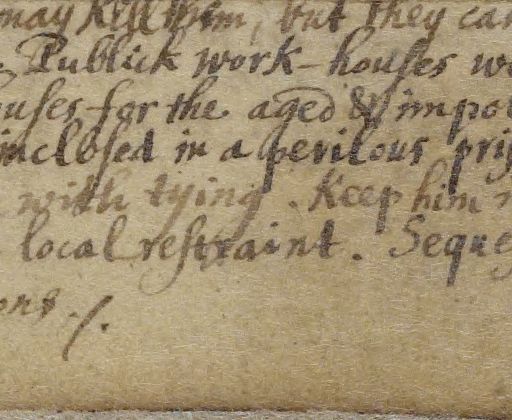 may kill them, but they can
Publick work-houses w
ouses for the aged & impot
inclosed in a perilous pris
with tying. Keep him
local restraint. Seque
ons./.